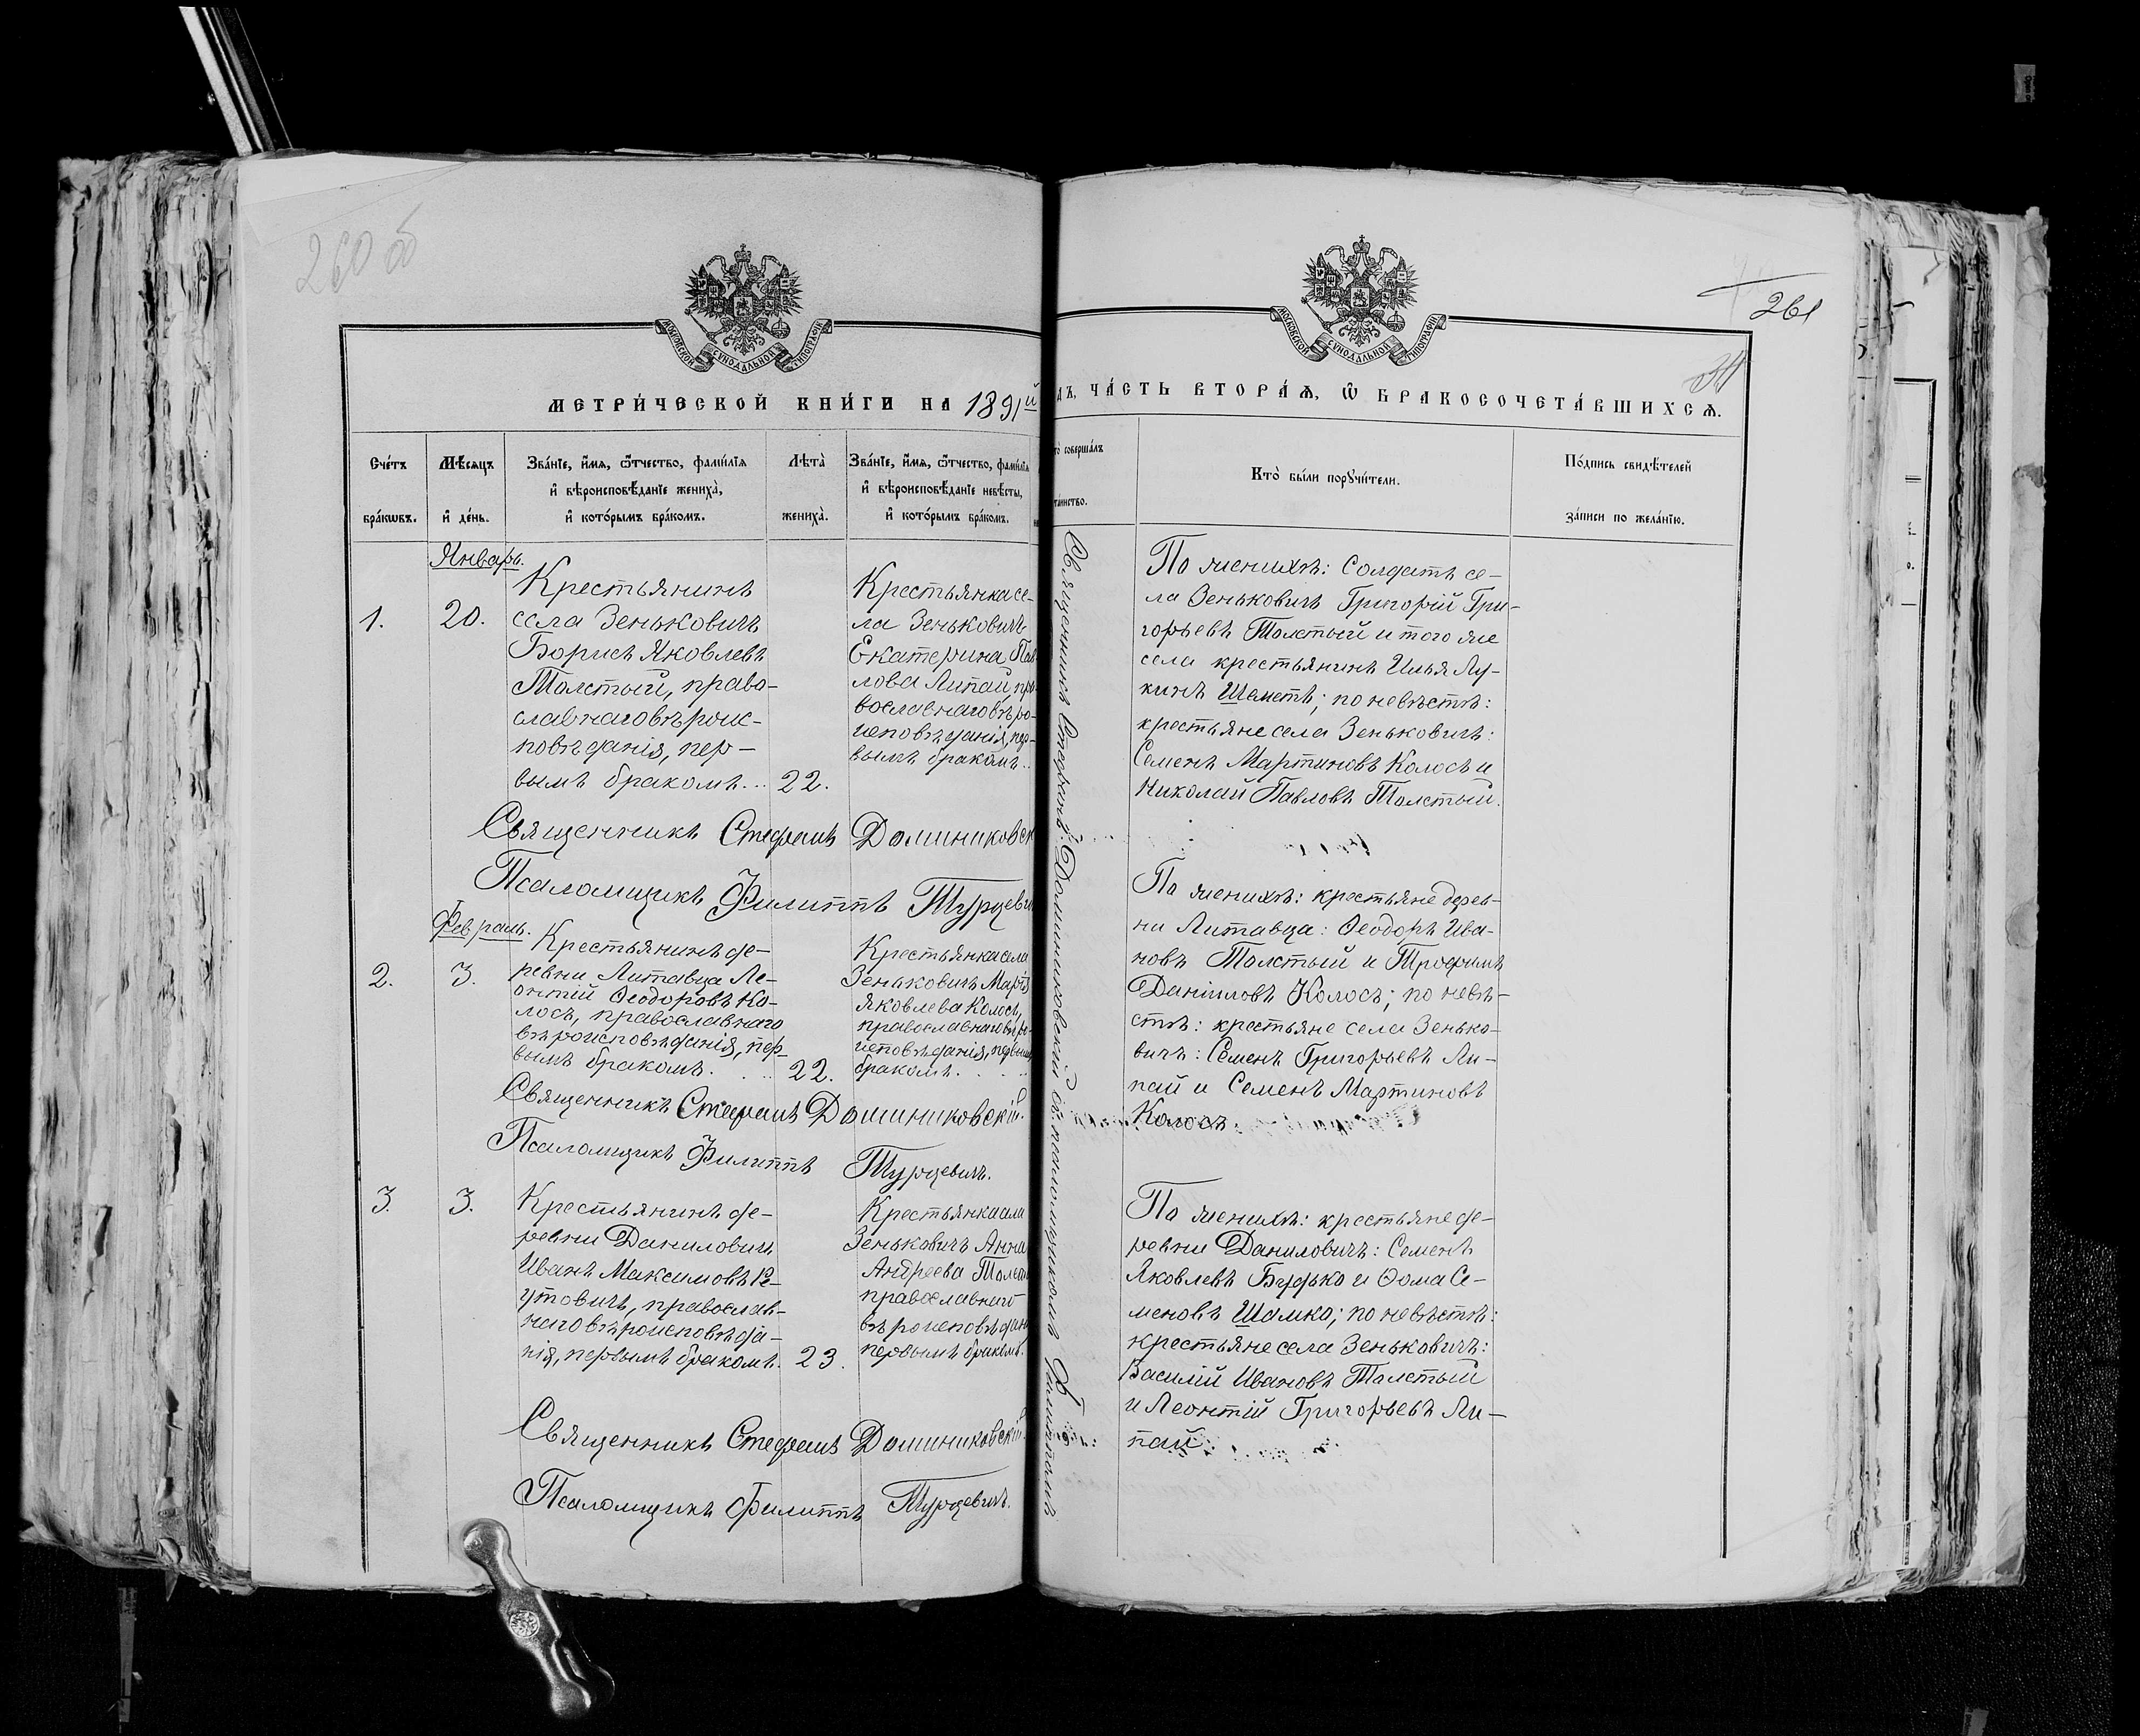 260 об
261
МОСКОВСКОЙ СѴНОДАЛЬНОЙ ТИПОГРАФІИ
МОСКОВСКОЙ СѴНОДАЛЬНОЙ ТИПОГРАФІИ
МЕТРИ́ЧЕСКОЙ КНИ́ГИ НА 1891й
ДЪ, ЧА́СТЬ ВТОРА́Ѧ, Ѽ БРАКОСОЧЕТА́ВШИХСѦ.
Сче́тъ
бра́кѡвъ.
Мѣ́сѧцъ
и҆ де́нь.
Зва́нїе, и҆́мѧ, ѻ҆́тчество, фами́лїѧ
и҆ вѣроисповѣ́данїе жениха̀,
и҆ кото́рымъ бра́комъ.
Лѣта̀
жениха̀.
Зва́нїе, и҆́мѧ, ѻ҆́тчество, фами́лїѧ
и҆ вѣроисповѣ́данїе невѣ́сты,
и҆ кото́рымъ бра́комъ.
то̀ соверша́лъ
та́инство.
Кто̀ бы́ли порꙋчи́тели.
По́дпись свидѣ́телей
за́писи по жела́нїю.
Январь.
1.
20.
Крестьянинъ
села Зеньковичъ
Борисъ Яковлевъ
Толстый, право-
славнаго вѣроис-
повѣданія, пер-
вымъ бракомъ...
22.
Крестьянка се-
ла Зеньковичъ
Екатерина Пав
лова Липай, пра
вославнаго вѣро-
исповѣданія, пер-
вымъ бракомъ..
По женихѣ: Солдатъ се-
ла Зеньковичъ Григорій Гри-
горьевъ Толстый и того же
села крестьянинъ Илья Лу-
кинъ Шаметъ; по невѣстѣ:
крестьяне села Зеньковичъ:
Семенъ Мартиновъ Колосъ и
Николай Павловъ Толстый.
Священникъ Стефанъ Доминиковск
Псаломщикъ Филиппъ Турцеви
Февраль.
2.
3.
Крестьянинъ де-
ревни Литавца Ле-
онтій Ѳеодоровъ Ко-
лосъ, православнаго
вѣроисповѣданія, пер-
вымъ бракомъ. . ..
22.
Крестьянка села
Зеньковичъ Марія
Яковлева Колосъ,
православнаго вѣро-
исповѣданія, первымъ
бракомъ. . . .
По женихѣ: крестьяне дерев-
ни Литавца: Ѳеодоръ Ива-
новъ Толстый и Трофимъ
Даніиловъ Колосъ; по невѣ-
стѣ: крестьяне села Зенько-
вичъ: Семенъ Григорьевъ Ли-
пай и Семенъ Мартиновъ
Колосъ.
Священникъ Стефанъ Доминиковскій.
Псаломщикъ Филиппъ Турцевичъ.
3.
3.
Крестьянинъ де-
ревни Даниловичъ
Иванъ Максимовъ Ре-
утовичъ, православ-
наго вѣроисповѣда-
нія, первымъ бракомъ.
23.
Крестьянка села
Зеньковичъ Анна
Андреева Толст
православнаго
вѣроисповѣдан
первымъ бракомъ.
По женихѣ: крестьяне де-
ревни Даниловичъ: Семенъ
Яковлевъ Будько и Ѳома Се-
меновъ Шамко; по невѣстѣ:
крестьяне села Зеньковичъ:
Василій Ивановъ Толстый
и Леонтій Григорьевъ Ли-
пай.
Священникъ Стефанъ Доминиковскій.
Псаломщикъ Филиппъ Турцевичъ.
Священникъ Стефанъ Доминиковский съ псаломщикомъ Филиппомъ